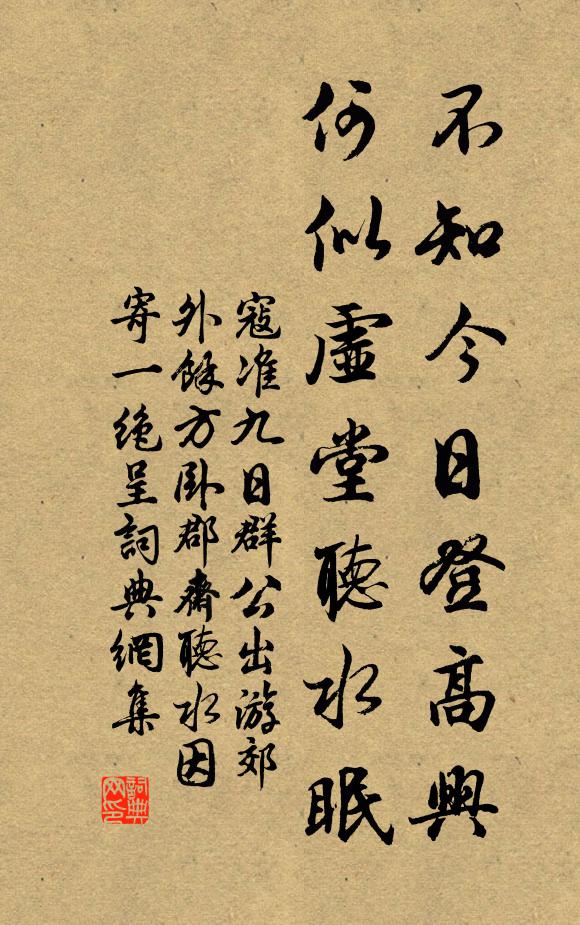 不知今日登高興
何似虛堂聽水眠
寇准九日群公出游郊
外餘方臥郡齋聽水因
寄一絶呈詞典網集
詞典
网印